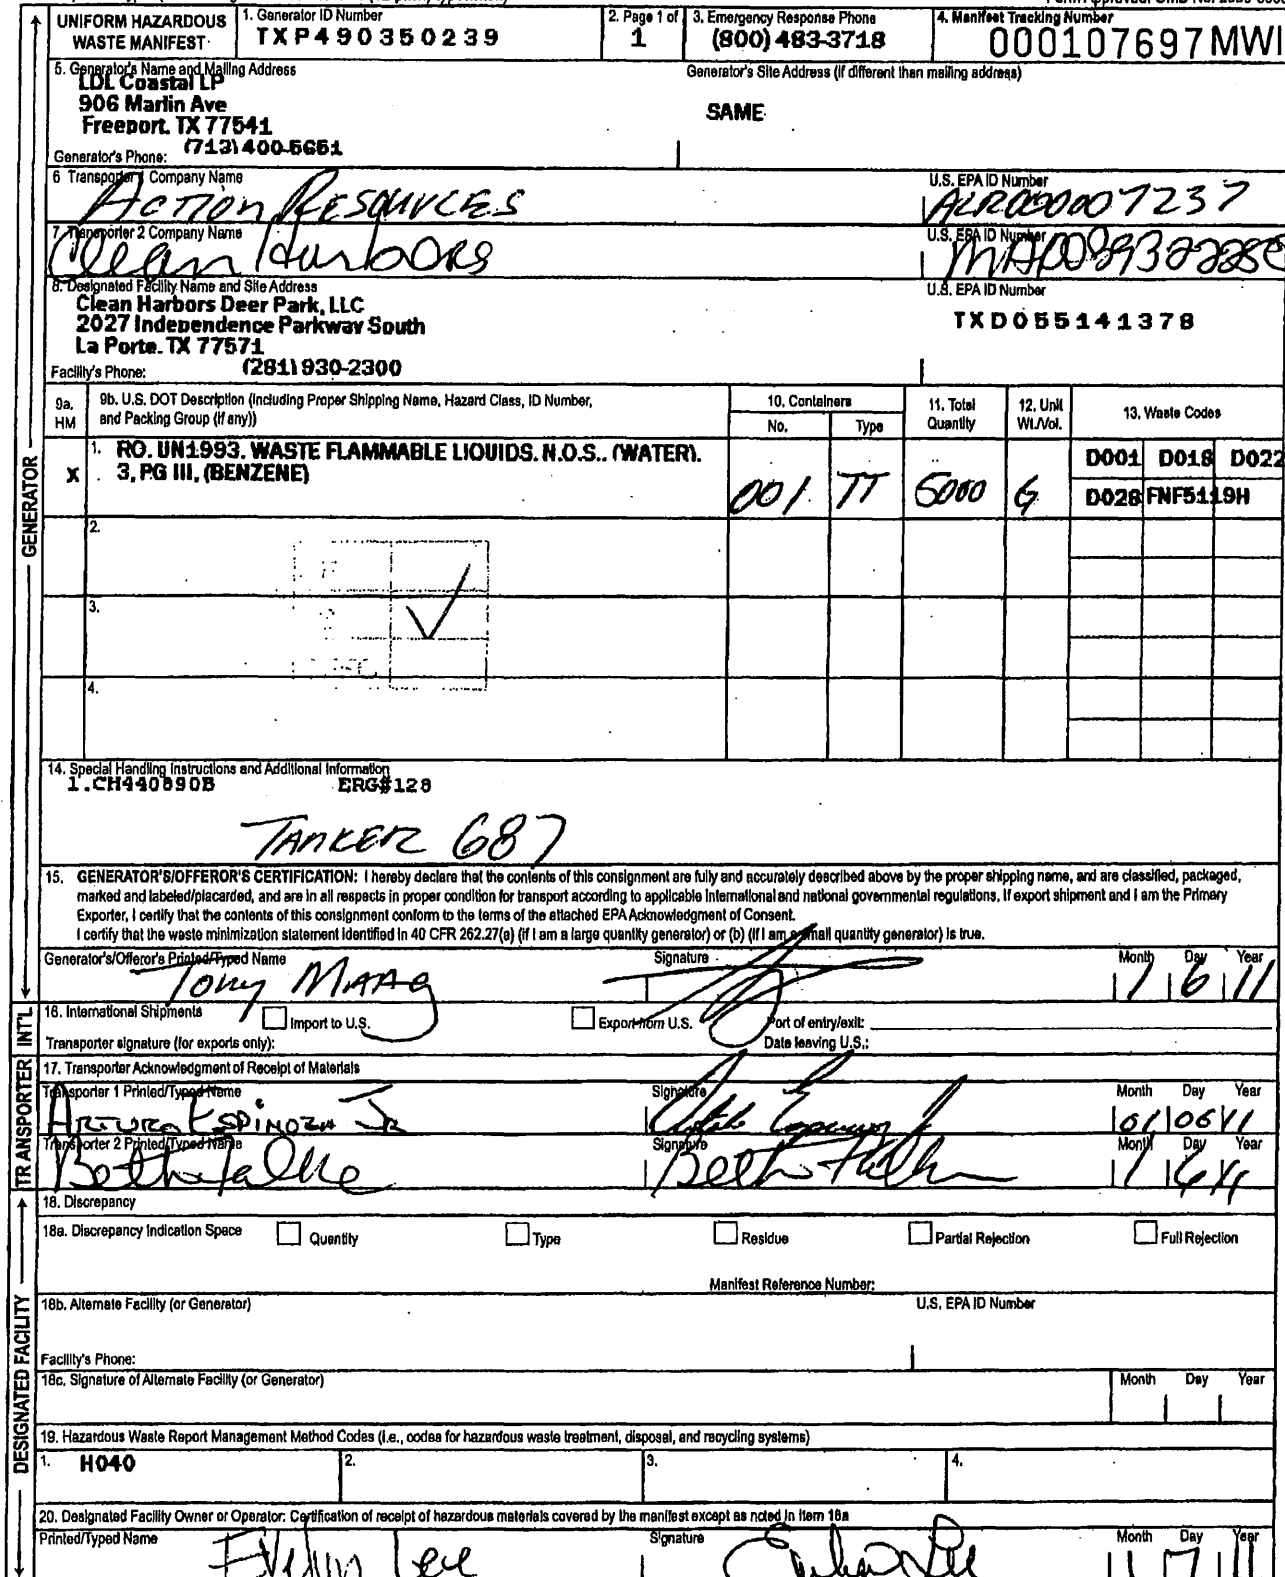 UNIFORM HAZARDOUS WASTE MANIFEST
1. Generator ID Number
TXP490350239
2. Page 1 of
1
3. Emergency Response Phone
(800) 483-3718
4. Manifest Tracking Number
000107697 MWI
5. Generator's Name and Mailing Address
LDL Coastal LP
906 Marlin Ave
Freeport, TX 77541
Generator's Phone: (713) 400-5651
Generator's Site Address (if different than mailing address)
SAME
6 Transporter 1 Company Name
Action Resources
U.S. EPA ID Number
ALR000007237
7. Transporter 2 Company Name
Clean Harbors
U.S. EPA ID Number
8. Designated Facility Name and Site Address
Clean Harbors Deer Park, LLC
2027 Independence Parkway South
La Porte, TX 77571
Facility's Phone: (281) 930-2300
U.S. EPA ID Number
TXD055141378
GENERATOR
9a. HM
9b. U.S. DOT Description (including Proper Shipping Name, Hazard Class, ID Number, and Packing Group (if any))
10. Containers
No.
Type
11. Total Quantity
12. Unit Wt./Vol.
13. Waste Codes
X
1. RO. UN1993. WASTE FLAMMABLE LIQUIDS. N.O.S.. (WATER).
3, PG III, (BENZENE)
001 TT 5000 G
D001 D018 D022
D028 FNF5119H
2.
3.
4.
14. Special Handling Instructions and Additional Information
1.CH440890B ERG#128
TANKER 687
15. GENERATOR'S/OFFEROR'S CERTIFICATION: I hereby declare that the contents of this consignment are fully and accurately described above by the proper shipping name, and are classified, packaged,
marked and labeled/placarded, and are in all respects in proper condition for transport according to applicable international and national governmental regulations. If export shipment and I am the Primary
Exporter, I certify that the contents of this consignment conform to the terms of the attached EPA Acknowledgment of Consent.
I certify that the waste minimization statement identified in 40 CFR 262.27(a) (if I am a large quantity generator) or (b) (if I am a small quantity generator) is true.
Generator's/Offeror's Printed/Typed Name
Tony Maag
Signature
Month Day Year
1 6 11
INT'L
16. International Shipments
Import to U.S.
Export from U.S.
Port of entry/exit:
Transporter signature (for exports only):
Date leaving U.S.:
TRANSPORTER
17. Transporter Acknowledgment of Receipt of Materials
Transporter 1 Printed/Typed Name
Arturo Espinoza Jr
Signature
Month Day Year
01 06 11
Transporter 2 Printed/Typed Name
Beth
Signature
Beth
Month Day Year
1 6 11
DESIGNATED FACILITY
18. Discrepancy
18a. Discrepancy Indication Space
Quantity
Type
Residue
Partial Rejection
Full Rejection
Manifest Reference Number:
18b. Alternate Facility (or Generator)
U.S. EPA ID Number
Facility's Phone:
18c. Signature of Alternate Facility (or Generator)
Month Day Year
19. Hazardous Waste Report Management Method Codes (i.e., codes for hazardous waste treatment, disposal, and recycling systems)
1. H040
2.
3.
4.
20. Designated Facility Owner or Operator: Certification of receipt of hazardous materials covered by the manifest except as noted in Item 18a
Printed/Typed Name
Lee
Signature
Month Day Year
1 7 11